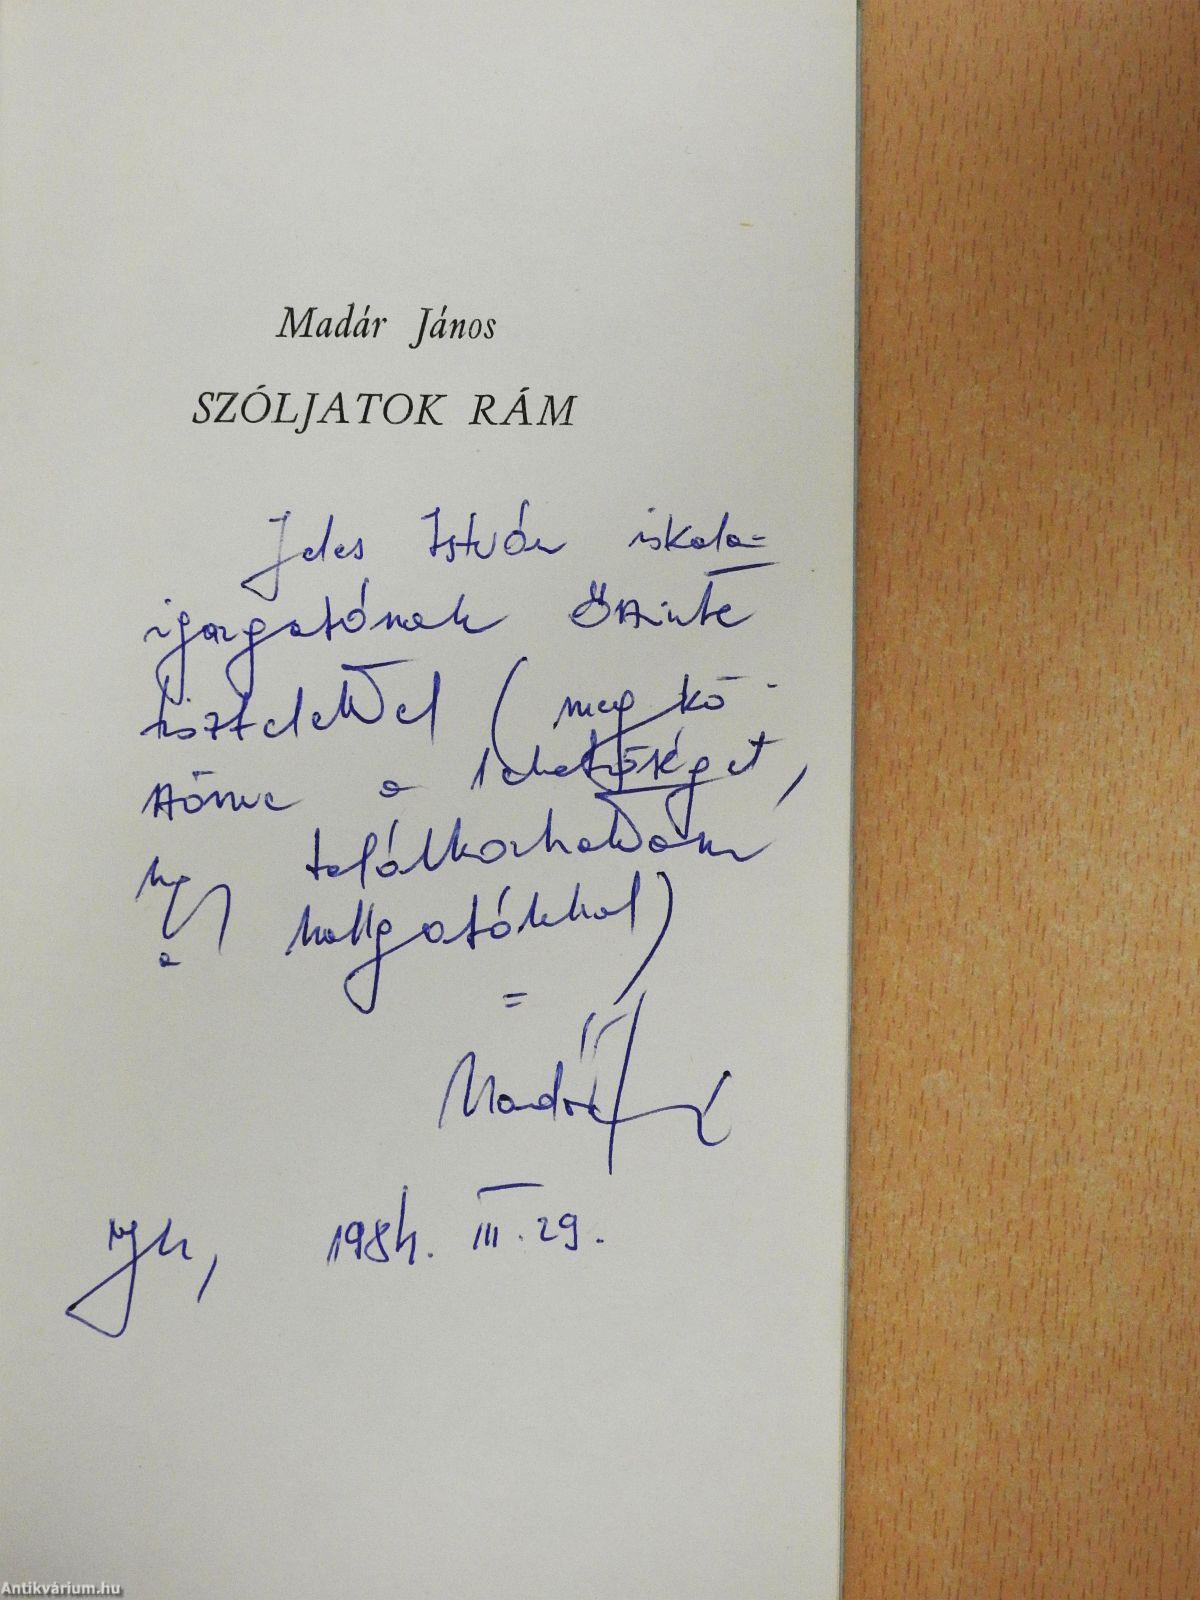 Madár János
SZÓLJATOK RÁM
Jeles István iskola=
igazgatónak őszinte
tisztelettel (megkö-
szönve a lehetőséget,
hogy találkozhattam
a hallgatókkal)
=
Madár
1984. III. 29.
Antikvárium.hu